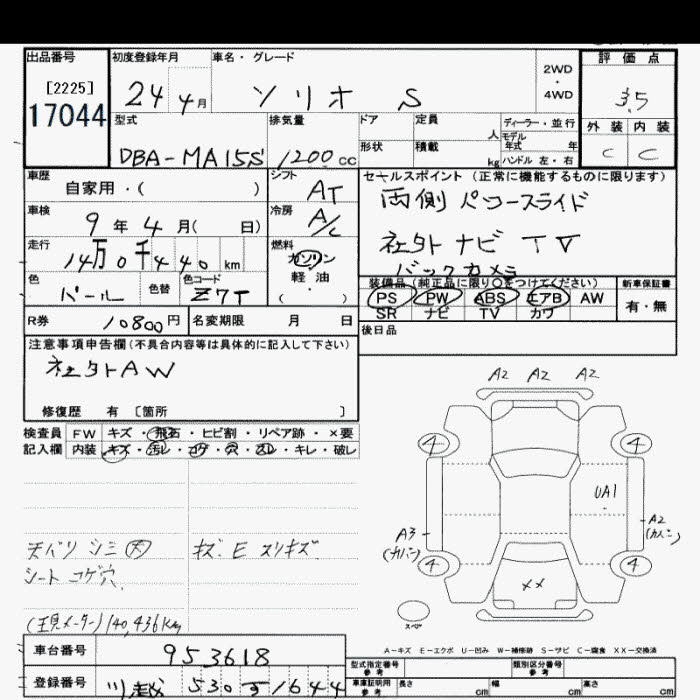 出品番号 初度登録年月 車名・グレード 評価点
[2225] 24 4月 ソリオ S 2WD・4WD 3.5
17044 型式 排気量 ドア 定員 人 ディーラー・並行 外装 内装
DBA-MA15S 1200cc 形状 積載 kg モデル年式 年 ハンドル 左・右 C C
車歴 自家用・( ) シフト AT セールスポイント (正常に機能するものに限ります)
両側パワースライド
車検 9年4月( 日) 冷房 A/C
社外ナビ TV
走行 14万0千440km 燃料 ガソリン 軽油 ( ・ )
バックカメラ
色 パール 色替 色コード Z7T
装備品 (純正品に限り○をつけてください) 新車保証書
PS PW ABS エアB AW 有・無
SR ナビ TV カワ
R券 10800円 名変期限 月 日 後日品
注意事項申告欄 (不具合内容等は具体的に記入して下さい)
社外AW
修復歴 有 [箇所 ]
検査員 FW キズ・飛石・ヒビ割・リペア跡・×要
記入欄 内装 キズ・汚レ・コゲ・穴・スレ・キレ・破レ
A2 A2 A2
4 4
UA1
A3 A2
(カバン) (カバン)
4 4
××
スペア
天バリ シミ 大 キズ E スリキズ
シート コゲ穴
(現メーター) 140,436km
A-キズ E-エクボ U-凹み W-補修跡 S-サビ C-腐食 XX-交換済
車台番号 953618 型式指定番号 参考 類別区分番号 参考
登録番号 川越 530 1644 車庫証明用 参考 長さ cm 幅 cm 高さ cm